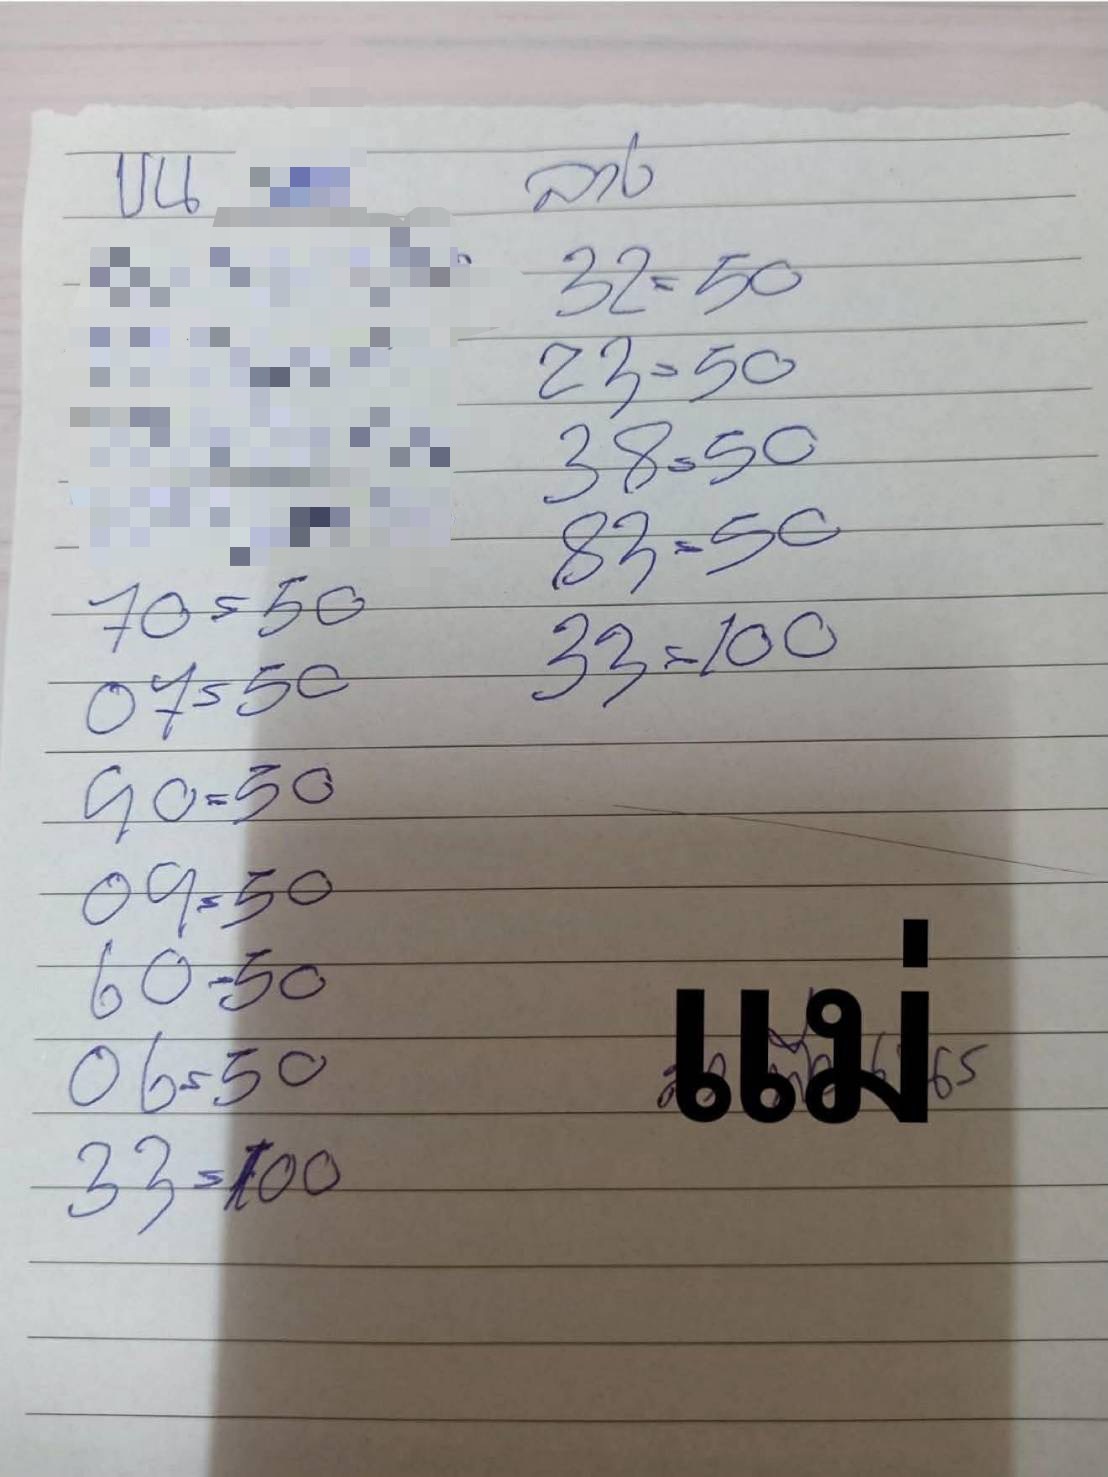 บน
70=50
07=50
90=50
09=50
60=50
06=50
33=100
ล่าง
32=50
23=50
38=50
83=50
33=100
แม่
65